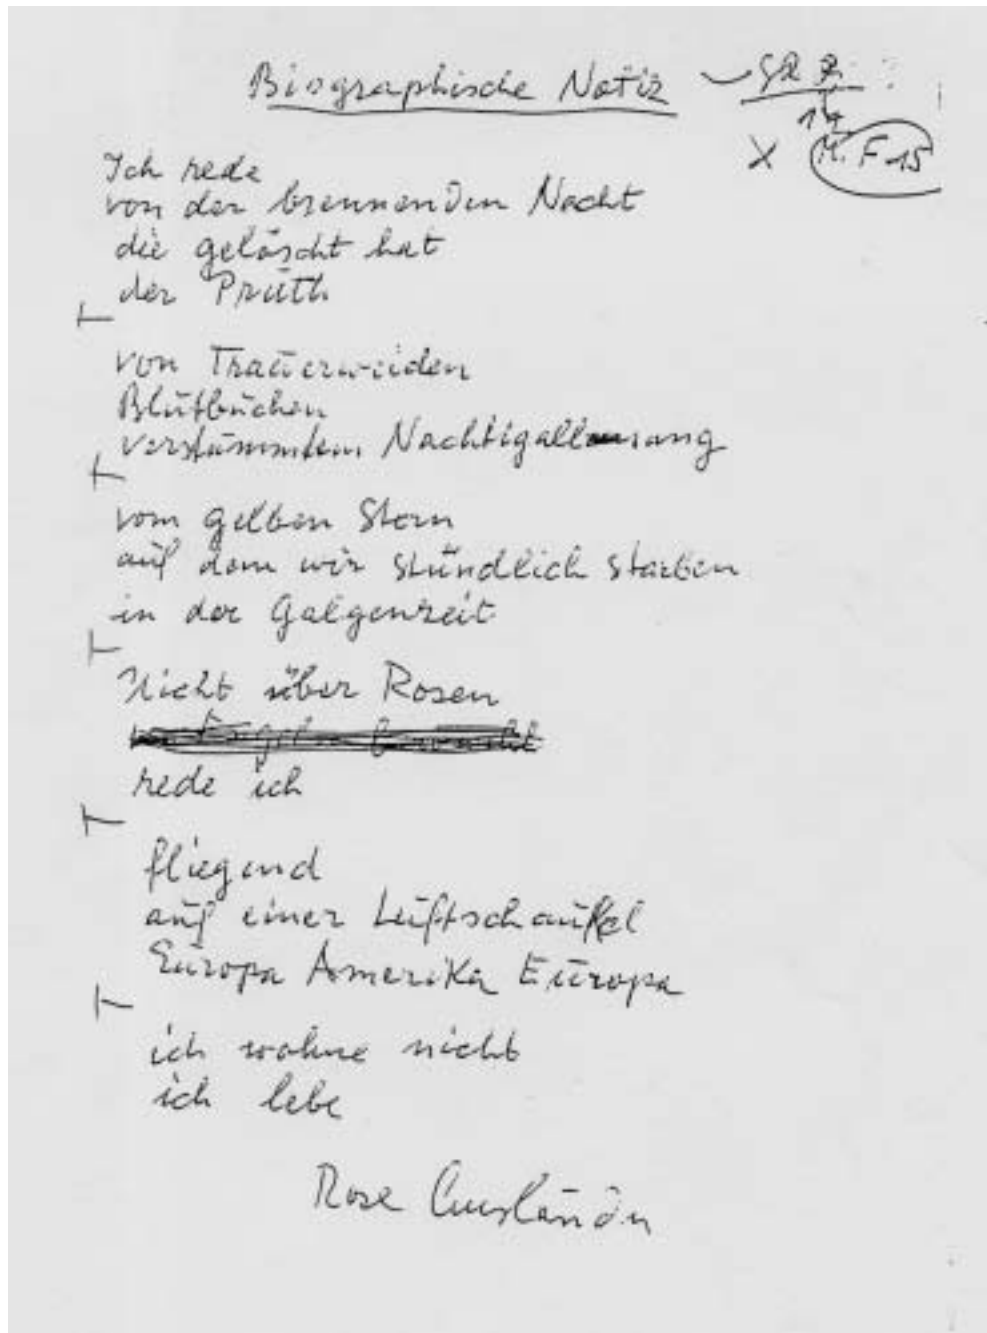 Biographische Notiz
M. F 15
Ich rede
von der brennenden Nacht
die gelöscht hat
der Pruth
von Trauerweiden
Blutbuchen
verstummtem Nachtigallensang
vom gelben Stern
auf dem wir stündlich starben
in der Galgenzeit
Nicht über Rosen
rede ich
fliegend
auf einer Luftschaukel
Europa Amerika Europa
ich wohne nicht
ich lebe
Rose Ausländer